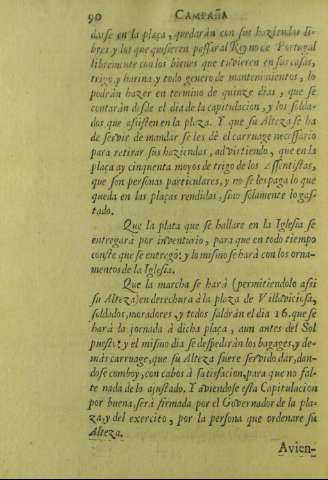 90 CAMPAÑA
darse en la plaça, quedarán con sus haziendas li-
bres y los que quisieren passar al Reyno de Portugal
libremente con los bienes que tuvieren en sus casas,
trigo, y harina, y todo genero de mantenimientos, lo
podrán hazer en termino de quinze dias, que se
contarán desde el dia de la capitulacion, y los solda-
dos que asisten en la plaza. Y que su Alteza se ha
de servir de mandar se les dè el carruage necessario
para retirar sus haziendas, advirtiendo, que en la
plaça ay cinquenta moyos de trigo de los Assentistas,
que son personas particulares, y no se les paga lo que
queda en las plaças rendidas, sino solamente lo gas-
tado.
Que la plata que se hallare en la Iglesia se
entregará por inventario, para que en todo tiempo
conste que se entregò: y lo mismo se hará con los orna-
mentos de la Iglesia.
Que la marcha se hará (permitiendolo assi
su Alteza) en derechura à la plaza de Villaviciosa,
soldados, moradores, y todos saldrán el dia 16. que se
hará la jornada à dicha plaça, aun antes del Sol
puesto: y el mismo dia se despedirán los bagages, y de-
más carruage, que su Alteza fuere servido dar, dan-
dose comboy, con cabos à satisfacion, para que no fal-
te nada de lo ajustado. Y aviendose esta Capitulacion
por buena, será firmada por el Governador de la pla-
za, y del exercito, por la persona que ordenare su
Alteza.
Avien-